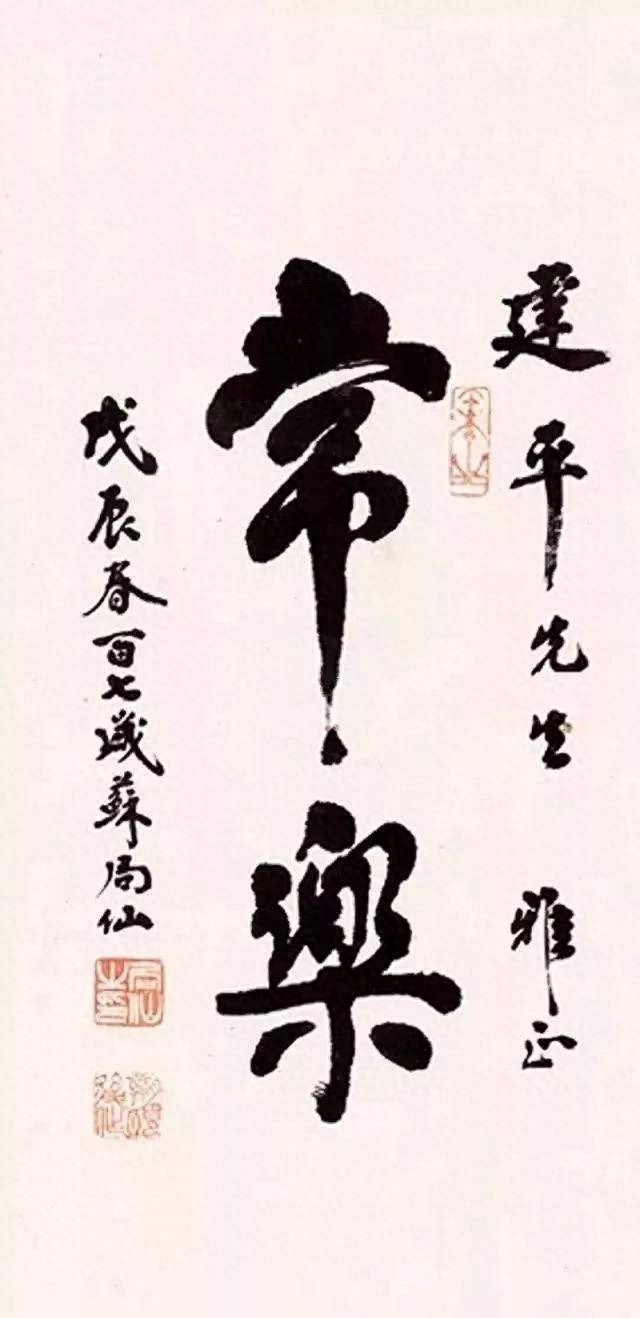 建平先生雅正
常樂
戊辰春百七歲蘇局仙